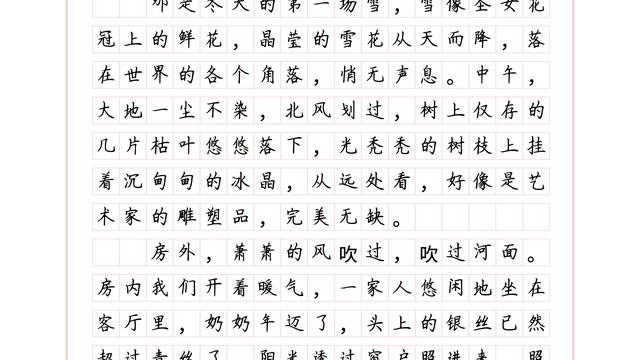 那是冬天的第一场雪，雪像圣女花
冠上的鲜花，晶莹的雪花从天而降，落
在世界的各个角落，悄无声息。中午，
大地一尘不染，北风划过，树上仅存的
几片枯叶悠悠落下，光秃秃的树枝上挂
着沉甸甸的冰晶，从远处看，好像是艺
术家的雕塑品，完美无缺。
房外，萧萧的风吹过，吹过河面。
房内我们开着暖气，一家人悠闲地坐在
客厅里，奶奶年迈了，头上的银丝已然
超过青丝了，阳光透过窗户照进来，照